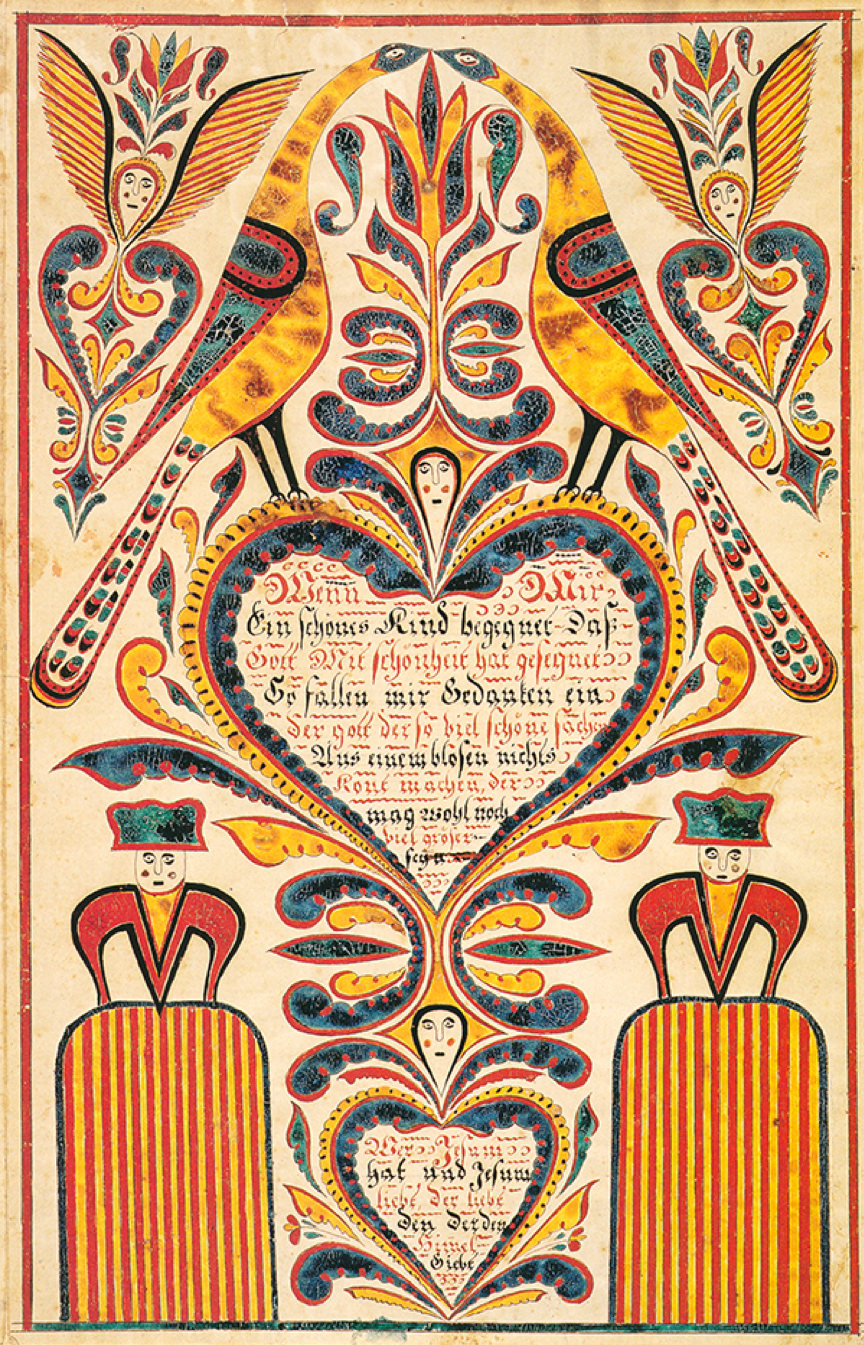 Wenn Mir
Ein schönes Kind begegnet Daß
Gott Mit schönheit hat gesegnet
So fallen mir Gedanken ein
der gott der so viel schöne sachen
Aus einem blosen nichts
Kont machen, der
mag wohl noch
viel gröser
seyn
Wer Jesum
hat und Jesum
liebt, Der liebt
den der den
Himel
Giebt